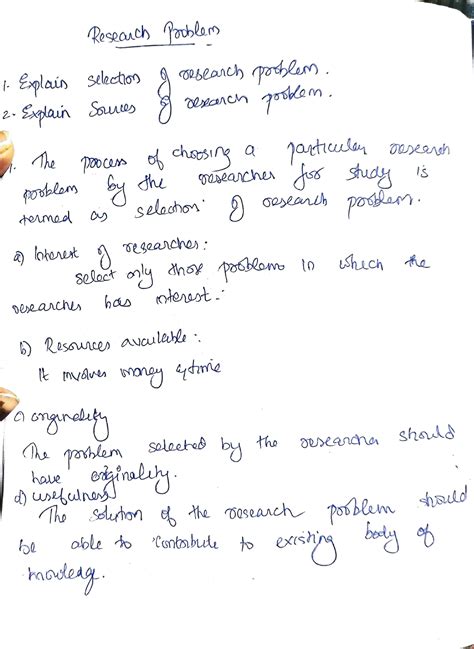 Research Problem
1. Explain selection of research problem.
2. Explain Sources of research problem.
1. The process of choosing a particular research
problem by the researcher for study is
termed as selection of research problem.
a) Interest of researcher:
select only those problems in which the
researcher has interest.
b) Resources available:
It involves money & time
c) originality
The problem selected by the researcher should
have originality.
d) usefulness
The solution of the research problem should
be able to contribute to existing body of
knowledge.